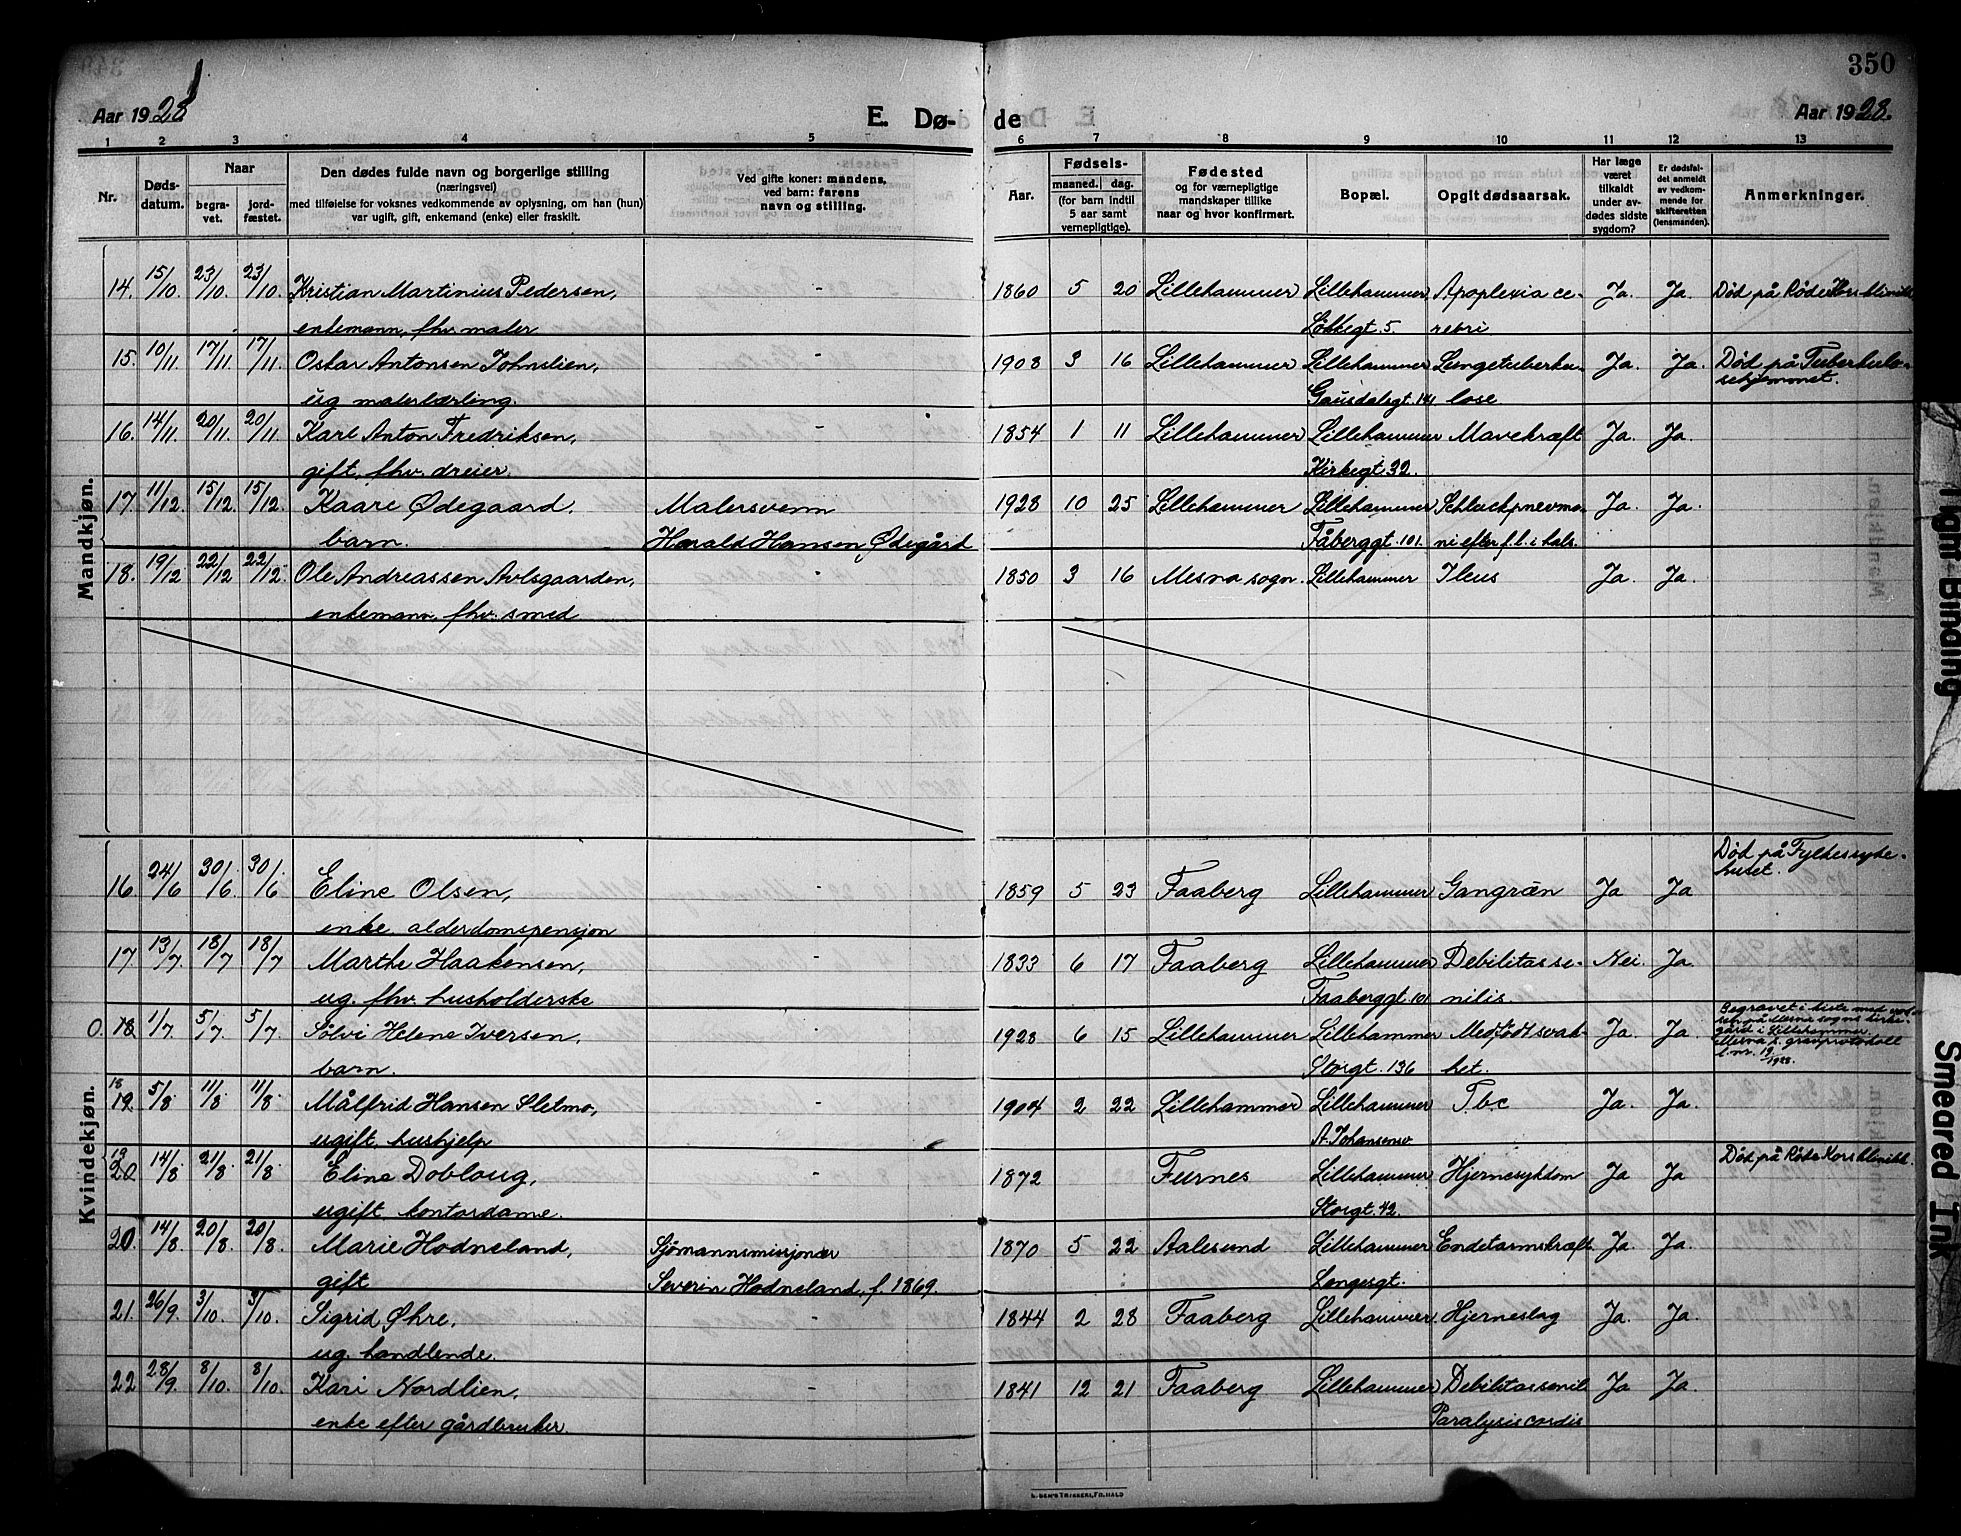 350
Aar 1928
E. Dø-
de
Aar 1928.
1 2 3 4 5 6 7 8 9 10 11 12 13
Nr.
Døds-
datum.
Naar
begra-
vet.
jord-
fæstet.
Den dødes fulde navn og borgerlige stilling
(næringsvei)
med tilføielse for voksnes vedkommende av oplysning, om han (hun)
var ugift, gift, enkemand (enke) eller fraskilt.
Ved gifte koner: mandens,
ved barn: farens
navn og stilling.
Aar.
Fødsels-
maaned. dag.
(for barn indtil
5 aar samt
vernepligtige).
Fødested
og for værnepligtige
mandskaper tillike
naar og hvor konfirmert.
Bopæl.
Opgit dødsaarsak.
Har læge
været
tilkaldt
under av-
dødes sidste
sygdom?
Er dødsfal-
det anmeldt
av vedkom-
mende for
skifteretten
(lensmanden).
Anmerkninger.
Mandkjøn.
14. 15/10 23/10. 23/10. Kristian Martinius Pedersen, - 1860 5 20 Lillehammer Lillehammer Apoplexia ce- Ja. Ja. Død på Røde Kors klinikk
enkemann, fhv. maler Løkkegt. 5. rebri
15. 10/11. 17/11. 17/11. Oskar Antonsen Johnslien, - 1908 3 16 Lillehammer Lillehammer Lungetuberku- Ja. Ja. Død på Tuberkulo-
sehjemmet.
ug. malerlærling. Gausdalsgt. 141 lose
16. 14/11. 20/11. 20/11. Karl Anton Fredriksen, - 1854 1 11 Lillehammer Lillehammer Mavekræft Ja. Ja.
gift, fhv. dreier. Kirkegt. 32.
17. 11/12. 15/12. 15/12. Kaare Ødegaard, Malersvenn 1928 10 25 Lillehammer Lillehammer Ja. Ja.
barn. Harald Hansen Ødegård Fåberggt. 101. ni efter f.l. i hals.
18. 19/12 22/12 22/12. Ole Andreassen Avlsgaarden, - 1850 3 16 Mesna sogn. Lillehammer Ileus Ja. Ja.
enkemann, fhv. smed
Kvindekjøn.
Død på Fylkessyke-
huset.
16. 24/6 30/6. 30/6 Eline Olsen, - 1859 5 23 Faaberg Lillehammer Gangrän Ja Ja
enke, alderdomspensjon
17. 13/7. 18/7 18/7 Marthe Haakensen, - 1833 6 17 Faaberg Lillehammer Debilitas se- Nei Ja.
ug. fhv. husholderske Faaberggt. 101 nilis.
0. 18. 1/7. 5/7 5/7 Sølvi Helene Iversen, - 1928 6 15 Lillehammer Lillehammer Medfødt svak- Ja. Ja. Begravet i kiste med
på Mesna sogns kirke-
gård i Lillehammer
Mesna s. gravprotokoll
l.nr. 19/1928.
barn. Storgt. 136 het.
18
19. 5/8 11/8 11/8. Målfrid Hansen Sletmo, - 1904 2 22 Lillehammer Lillehammer T.b.c Ja. Ja.
ugift, hushjelp A. Johansensv.
19
20 14/8 21/8. 21/8. Eline Dobloug, - 1872 Furnes Lillehammer Hjernesykdom Ja Ja Død på Røde Kors klinikk.
ugift, kontordame. Storgt. 42.
20. 14/8. 20/8. 20/8. Marie Hodneland, Sjømannsmisjonær 1870 5 22 Aalesund Lillehammer Endetarmskræft Ja. Ja.
gift Severin Hodneland, f. 1869. Langesgt.
21. 26/9. 3/10. 3/10. Sigrid Øhre, - 1844 2 28 Faaberg Lillehammer Hjerneslag Ja. Ja.
ug. handlende.
22 28/9. 8/10. 8/10. Kari Nordlien, - 1841 12 21 Faaberg Lillehammer Debilitas senil. Ja Ja.
enke efter gårdbruker. Paralysis cordis
Tight Binding
Smeared Ink